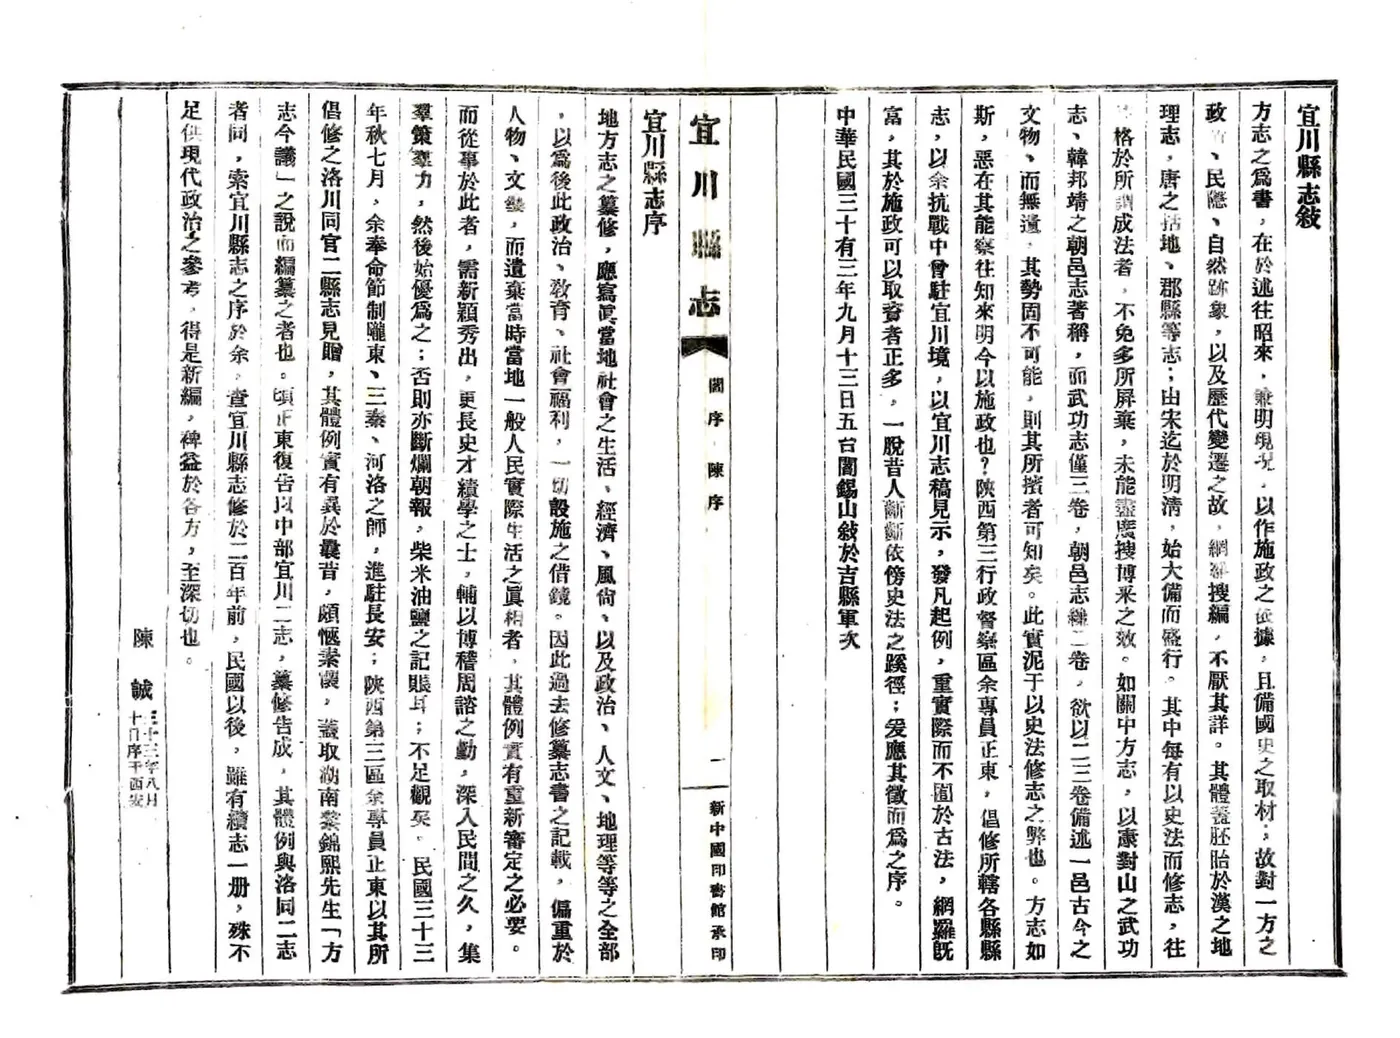 宜川縣志敍
方志之爲書，在於述往昭來，兼明現况，以作施政之依據，且備國史之取材；故對一方之
政、民隱、自然跡象，以及歷代變遷之故，網羅搜編，不厭其詳。其體蓋胚胎於漢之地
理志，唐之括地、郡縣等志；由宋迄於明清，始大備而盛行。其中每有以史法而修志，往
格於所謂成法者，不免多所屏棄，未能盡廣搜博采之效。如關中方志，以康對山之武功
志、韓邦靖之朝邑志著稱，而武功志僅三卷，朝邑志纔二卷，欲以二三卷備述一邑古今之
文物、而無遺，其勢固不可能，則其所擯者可知矣。此實泥于以史法修志之弊也。方志如
斯，惡在其能察往知來明今以施政也？陝西第三行政督察區余專員正東，倡修所轄各縣縣
志，以余抗戰中曾駐宜川境，以宜川志稿見示，發凡起例，重實際而不囿於古法，網羅旣
富，其於施政可以取資者正多，一脫昔人齗齗依傍史法之蹊徑；爰應其徵而爲之序。
中華民國三十有三年九月十三日五台閻錫山敍於吉縣軍次
宜川縣志
閻序 陳序
一
新中國印書館承印
宜川縣志序
地方志之纂修，應寫眞當地社會之生活、經濟、風尙、以及政治、人文、地理等等之全部
，以爲後此政治、敎育、社會福利，一切設施之借鏡。因此過去修纂志書之記載，偏重於
人物、文藝，而遺棄當時當地一般人民實際生活之眞相者，其體例實有重新審定之必要。
而從事於此者，需新穎秀出，更長史才績學之士，輔以博稽周諮之勤，深入民間之久，集
羣策羣力，然後始優爲之；否則亦斷爛朝報，柴米油鹽之記賬耳；不足觀矣。民國三十三
年秋七月，余奉命節制隴東、三秦、河洛之師，進駐長安；陝西第三區余專員正東以其所
倡修之洛川同官二縣志見贈，其體例實有異於曩昔，頗愜素懷，蓋取湖南黎錦熙先生「方
志今議」之說而編纂之者也。頃正東復告以中部宜川二志，纂修告成，其體例與洛同二志
者同，索宜川縣志之序於余。查宜川縣志修於二百年前，民國以後，雖有續志一册，殊不
足供現代政治之參考，得是新編，裨益於各方，至深切也。
陳 誠 三十三年八月十日序于西安